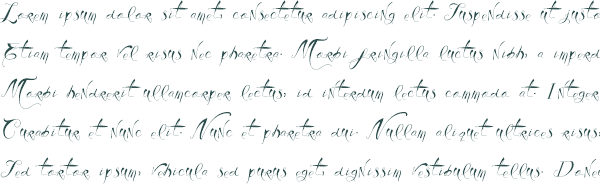 Lorem ipsum dolor sit amet, consectetur adipiscing elit. Suspendisse ut justo
Etiam tempor vel risus nec pharetra. Morbi fringilla luctus nibh, a imperd
Morbi hendrerit ullamcorper lectus, id interdum lectus commodo at. Integer
Curabitur et nunc elit. Nunc et pharetra dui. Nullam aliquet ultrices risus.
Sed tortor ipsum, vehicula sed purus eget, dignissim vestibulum tellus. Donec